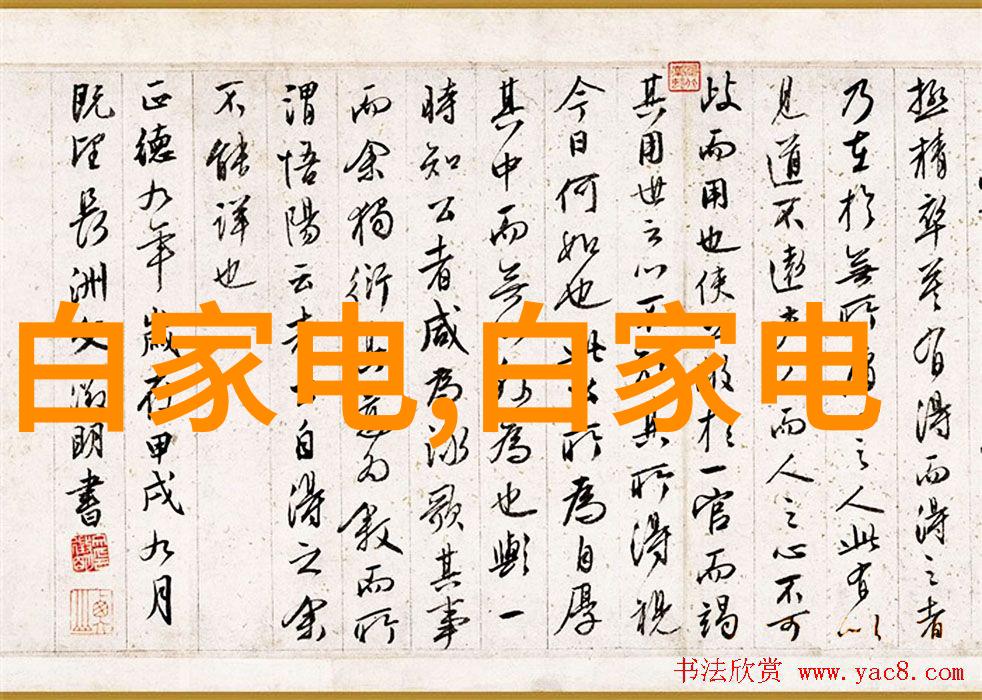 極精卒莫有得而得之者
乃在於無所得之人此有以
見道不遠夫而人之心不可
歧而用也使散於一官而竭
其用世之心不其所得視
今日何如也此所為自厚
其中而無為也與一
時知公者咸為詠歌其事
而余獨衍其道為敘而所
謂悟陽云者自得之余
不能詳也
正德九年歲在甲戌九月
既望長洲文徵明書
白家电,白家电
书法欣赏 www.yac8.com